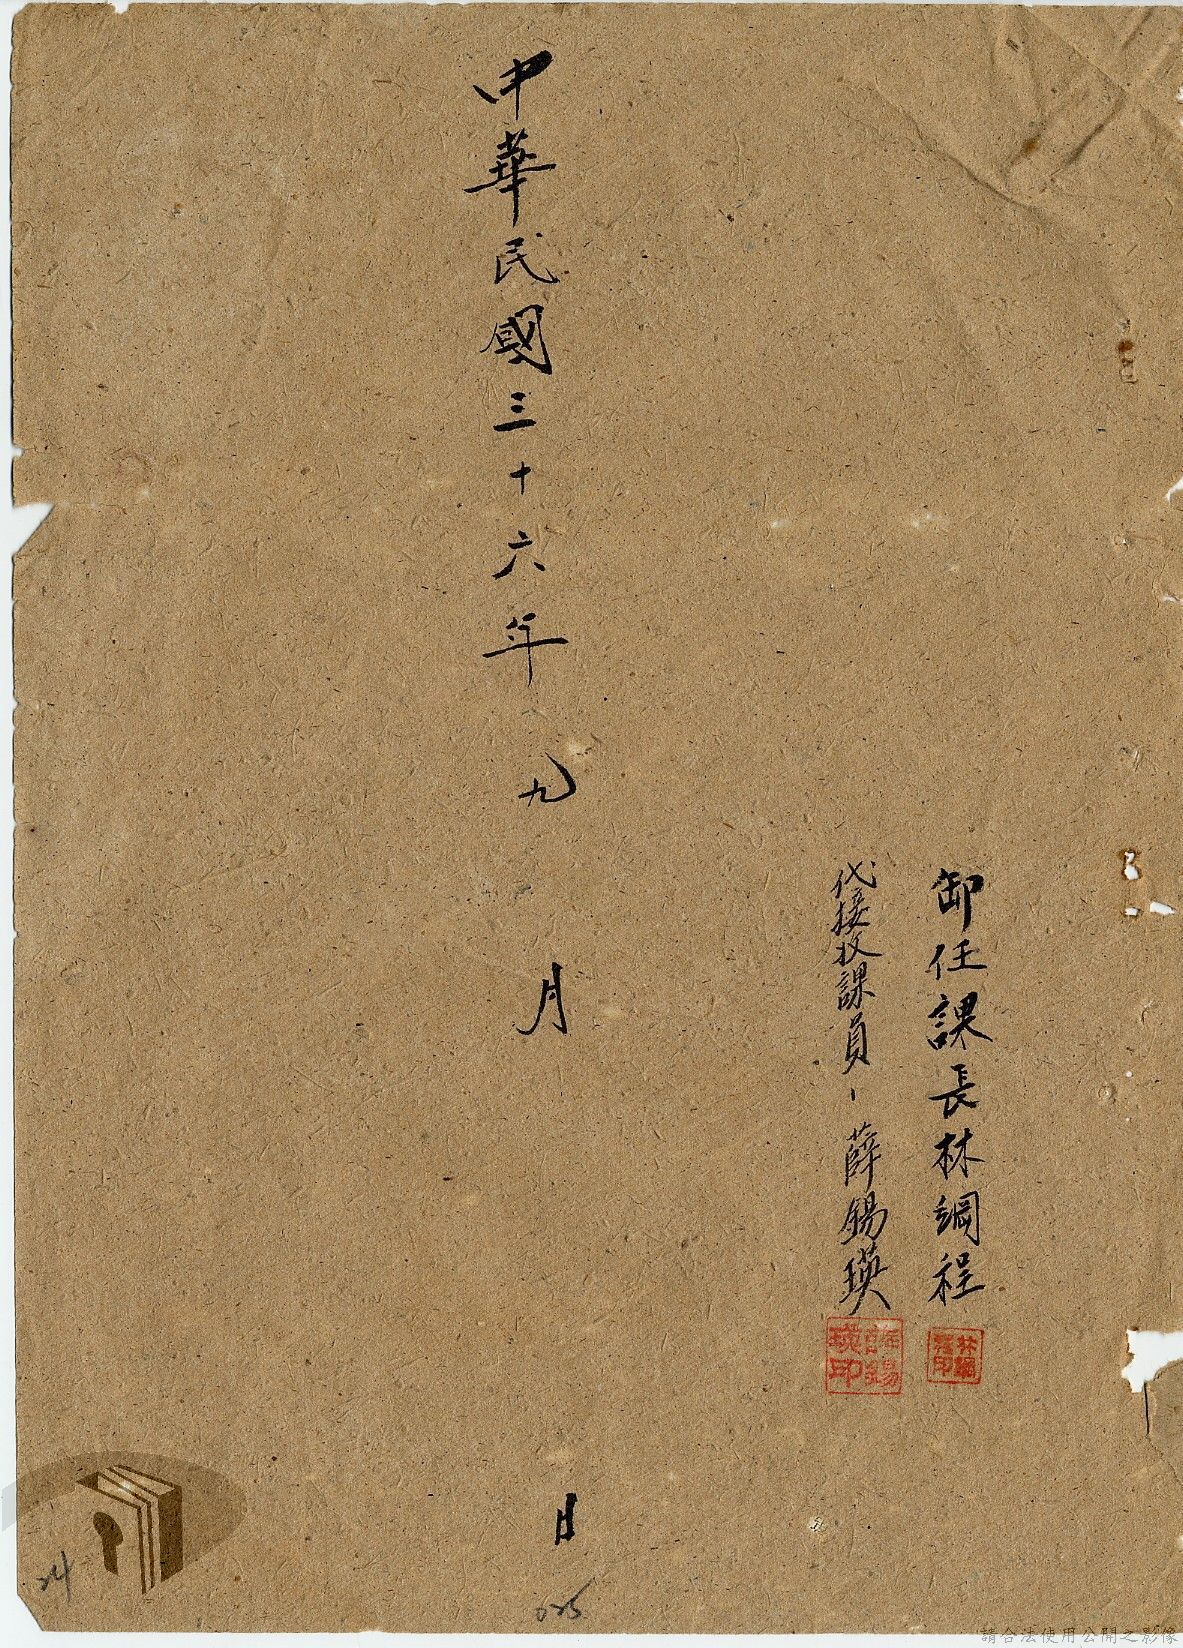 卸任課長林綱程
代接收課員、薛錫瑛
林綱程印
薛錫瑛印
中華民國三十六年九月 日
24
025
請合法使用公開之影像